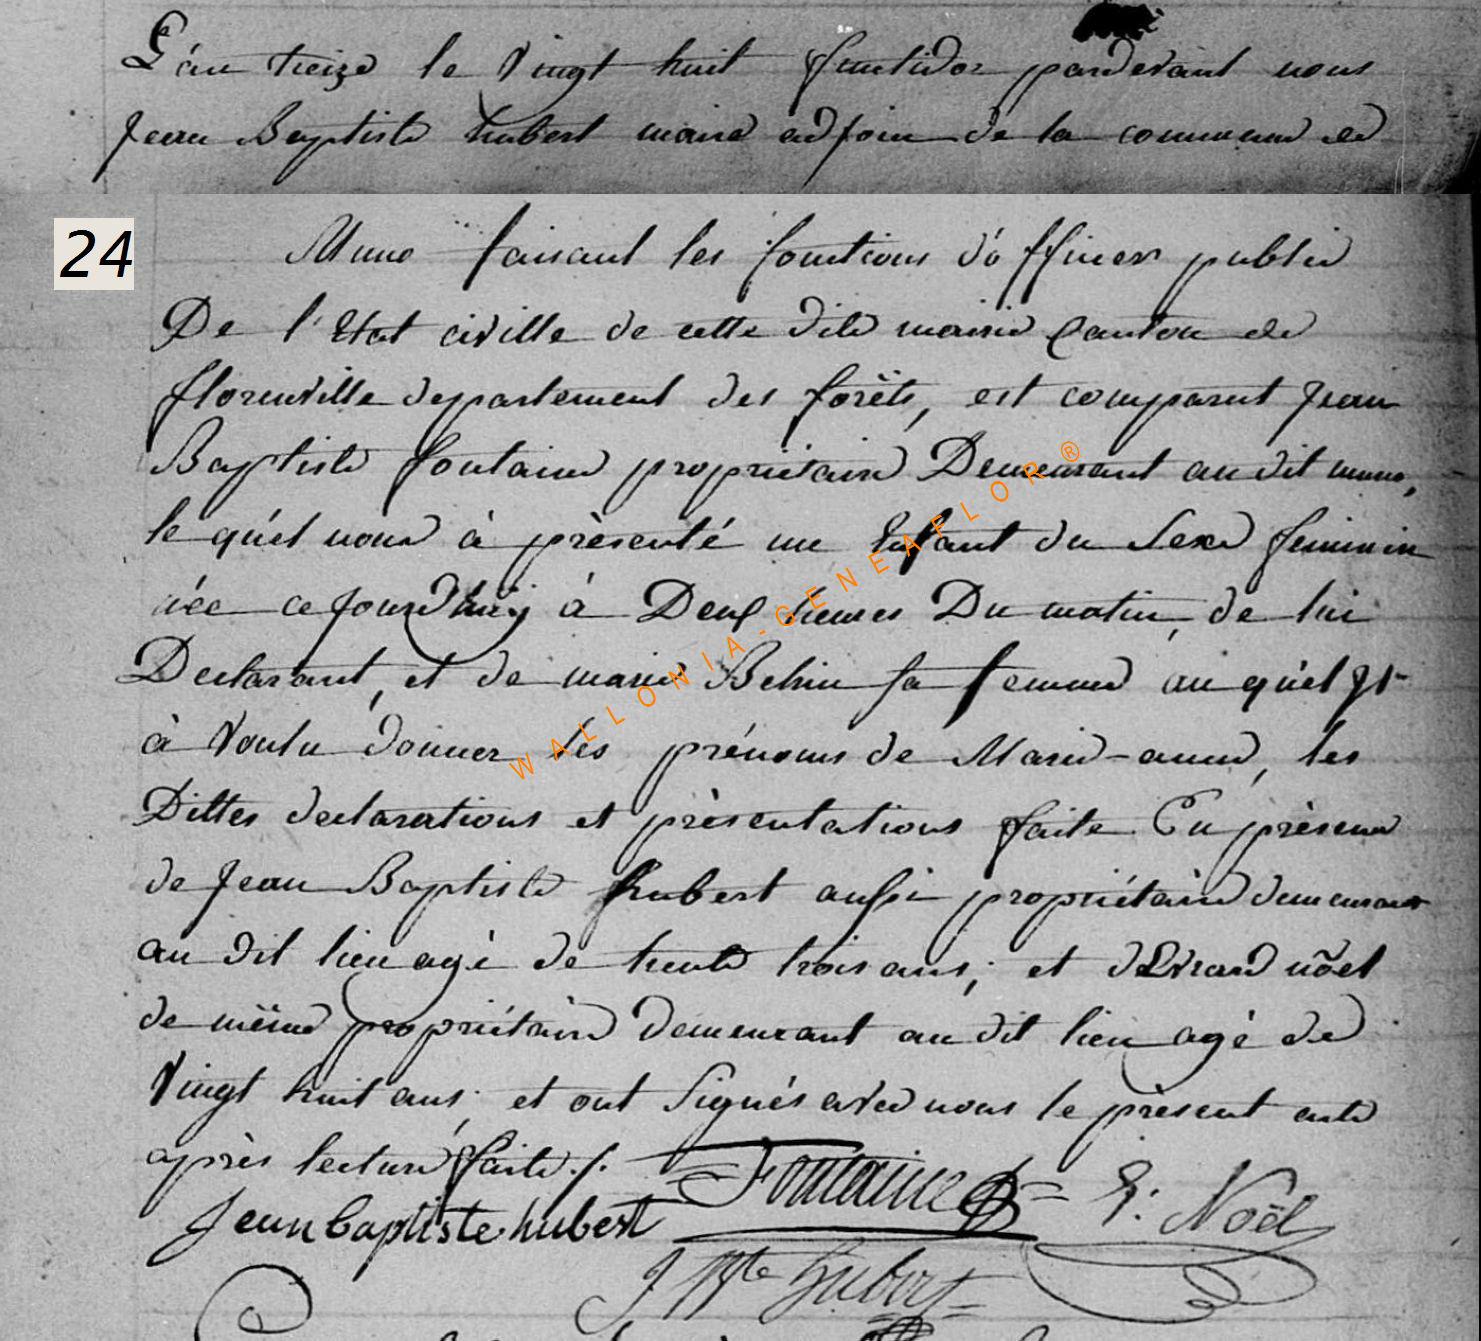 L'an treize le vingt huit fructidor pardevant nous
Jean Baptiste hubert maire adjoin de la commune de
24
Muno faisant les fonctions d'ófficier public
De l'Etat civille de cette dite mairie Canton de
florenville departement des forèts, est comparut Jean
Baptiste fontaine propriétaire Demeurant au dit muno,
le quél nous à présenté un Enfant du Sexe feminin
née ce jourd'huÿ à Deux heures Du matin, de lui
Declarant, et de marie Behin sa femme au quél Jl
à voulu donner les prénoms de Marie-anne, les
Dittes declarations et présentations faite En présence
de Jean Baptiste hubert aussi propriétaire demeurant
au dit lieu agé de trente trois ans; et d'Evrard nöel
de même propriétaire demeurant au dit lieu agé de
vingt huit ans; et ont signés avec nous le présent acte
après lecture faite./.
Fontaine E: Noël
Jean baptiste hubert
J Bte Hubert
WALLONIA-GENEAFLOR®